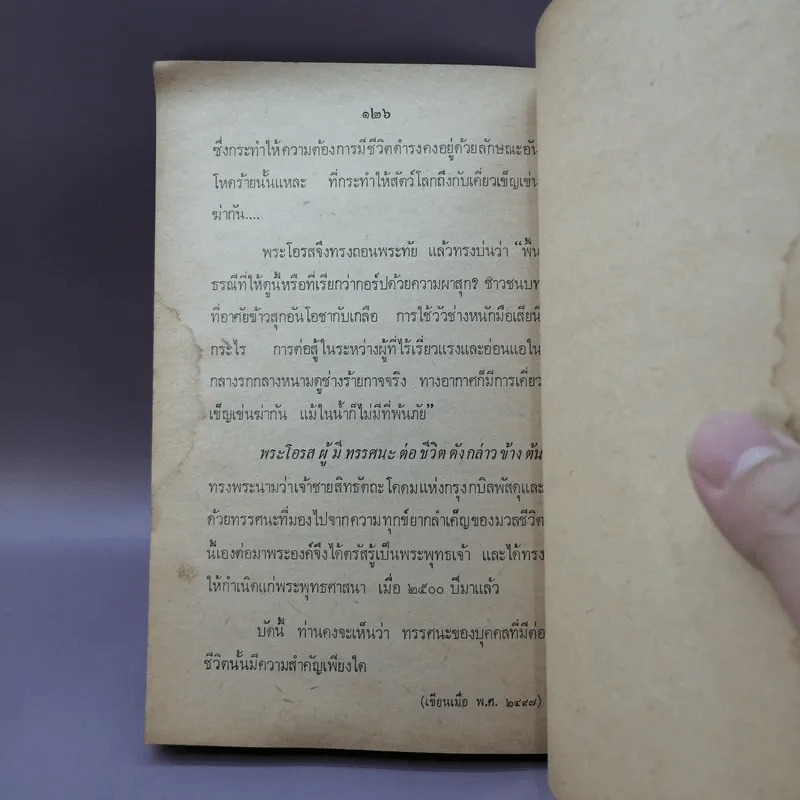 ๑๒๖
ซึ่งกระทำให้ความต้องการมีชีวิตดำรงคงอยู่ด้วยลักษณะอัน
โหดร้ายนั้นแหละ ที่กระทำให้สัตว์โลกถึงกับเคี่ยวเข็ญเข่น
ฆ่ากัน....
พระโอรสจึงทรงถอนพระทัย แล้วทรงบ่นว่า “พื้น
ธรณีที่ให้ดูนี้หรือที่เรียกว่ากอร์ปด้วยความผาสุก? ชาวชนบท
ที่อาศัยข้าวสุกอันโอชากับเกลือ การใช้วัวช่างหนักมือเสียนี่
กระไร การต่อสู้ในระหว่างผู้ที่ไร้เรี่ยวแรงและอ่อนแอใน
กลางรกกลางหนามดูช่างร้ายกาจจริง ทางอากาศก็มีการเคี่ยว
เข็ญเข่นฆ่ากัน แม้ในน้ำก็ไม่มีที่พ้นภัย”
พระโอรส ผู้ มี ทรรศนะ ต่อ ชีวิต ดัง กล่าว ข้าง ต้น
ทรงพระนามว่าเจ้าชายสิทธัตถะโคดมแห่งกรุงกบิลพัสดุและ
ด้วยทรรศนะที่มองไปจากความทุกข์ยากลำเค็ญของมวลชีวิต
นี้เองต่อมาพระองค์จึงได้ตรัสรู้เป็นพระพุทธเจ้า และได้ทรง
ให้กำเนิดแก่พระพุทธศาสนา เมื่อ ๒๕๐๐ ปีมาแล้ว
บัดนี้ ท่านคงจะเห็นว่า ทรรศนะของบุคคลที่มีต่อ
ชีวิตนั้นมีความสำคัญเพียงใด
(เขียนเมื่อ พ.ศ. ๒๔๙๗)